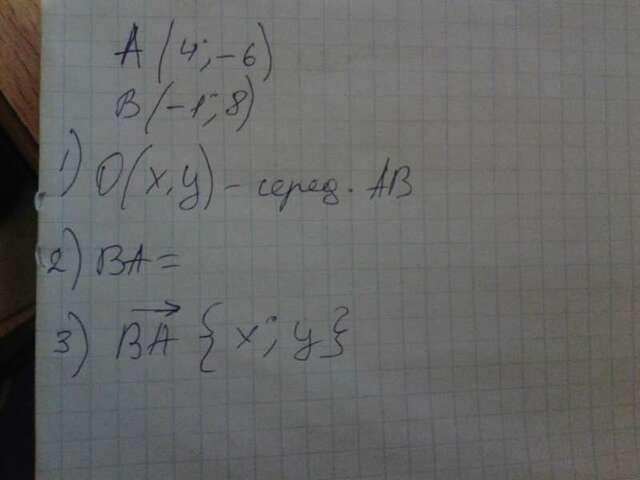 A (4; -6)
B (-1; 8)
1) O(x, y) - серед. AB
2) BA =
3) BA { x; y }